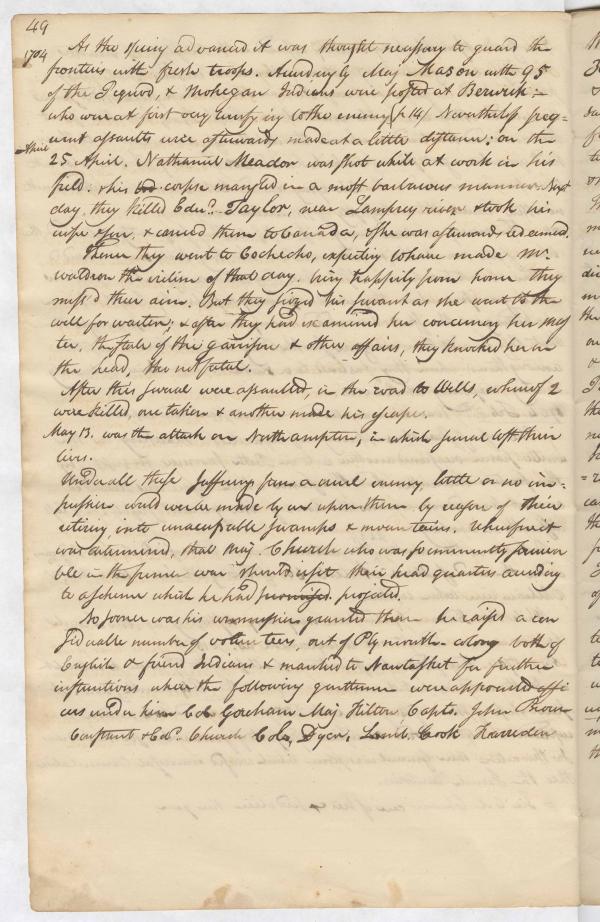 49
1704
As the spring advanced it was thought necessary to guard the
frontiers with fresh troops. Accordingly Maj Mason with 95
of the Pequod, & Mohegan Indians were posted at Berwick;—
who were at first very terrifying to the enemy (p 14) Nevertheless freq=
uent assaults were afterwards made at a little distance; on the
April
25 April. Nathaniel Meador was shot while at work in his
field. & his bod corpse mangled in a most barbarous manner. Next
day, they killed Edwd. Taylor, near Lamprey river & took his
wife & son, & carried them to Canada, & she was afterwards redeemed.
Thence they went to Cochecho, expecting to have made Mr.
Waldron the victim of that day. Being happily from home they
miss'd their aim. But they siezed his servant as she went to the
well for waiter; & after they had examined her concerning her mas
ter, the state of the garrison & other affairs, they knocked her on
the head, tho not fatal.
After this several were assaulted, in the road to Wells, whereof 2
were killed, one taken & another made his escape.
May 13. was the attack on Northampton, in which several lost their
lives.
Under all these sufferings from a cruel enemy, little or no im-
pression could ever be made by us upon them by reason of their
retiring into unaccessable swamps & mountains. Wherefore it
was determined, that Maj. Church who was so eminently servicea
ble in the former war should visit their head quarters according
to a scheme which he had promises. projected.
No sooner was his commission granted them he raised a con
siderable number of voluntteers, out of Plymouth-colony both of
English & friend Indians & marched to Nantasket for further
instructions where the following gentlemen were appointed offi
cers under him Col Goreham Maj Hilton Capts. John Brown
Constant & Edwd. Church Cole, Dyer, Lamb. Cook Harreden